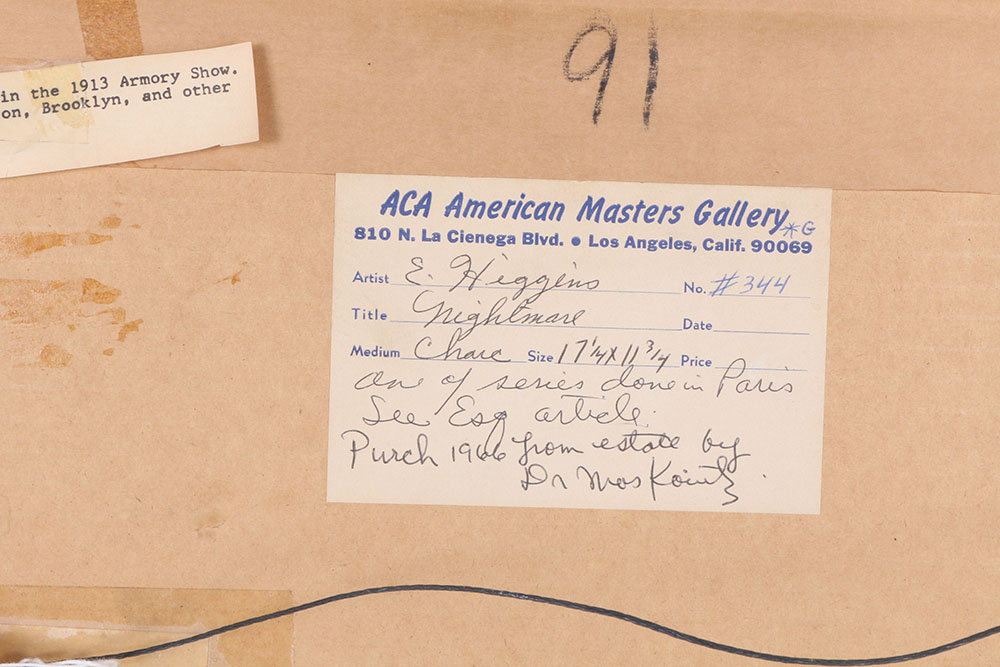 91
in the 1913 Armory Show.
on, Brooklyn, and other
ACA American Masters Gallery *G
810 N. La Cienega Blvd. • Los Angeles, Calif. 90069
Artist E. Higgins No. #344
Title Nightmare Date
Medium Charc Size 17 1/4 X 11 3/4 Price
One of series done in Paris
See Esq article.
Purch 1966 from estate by
Dr Moskowitz.